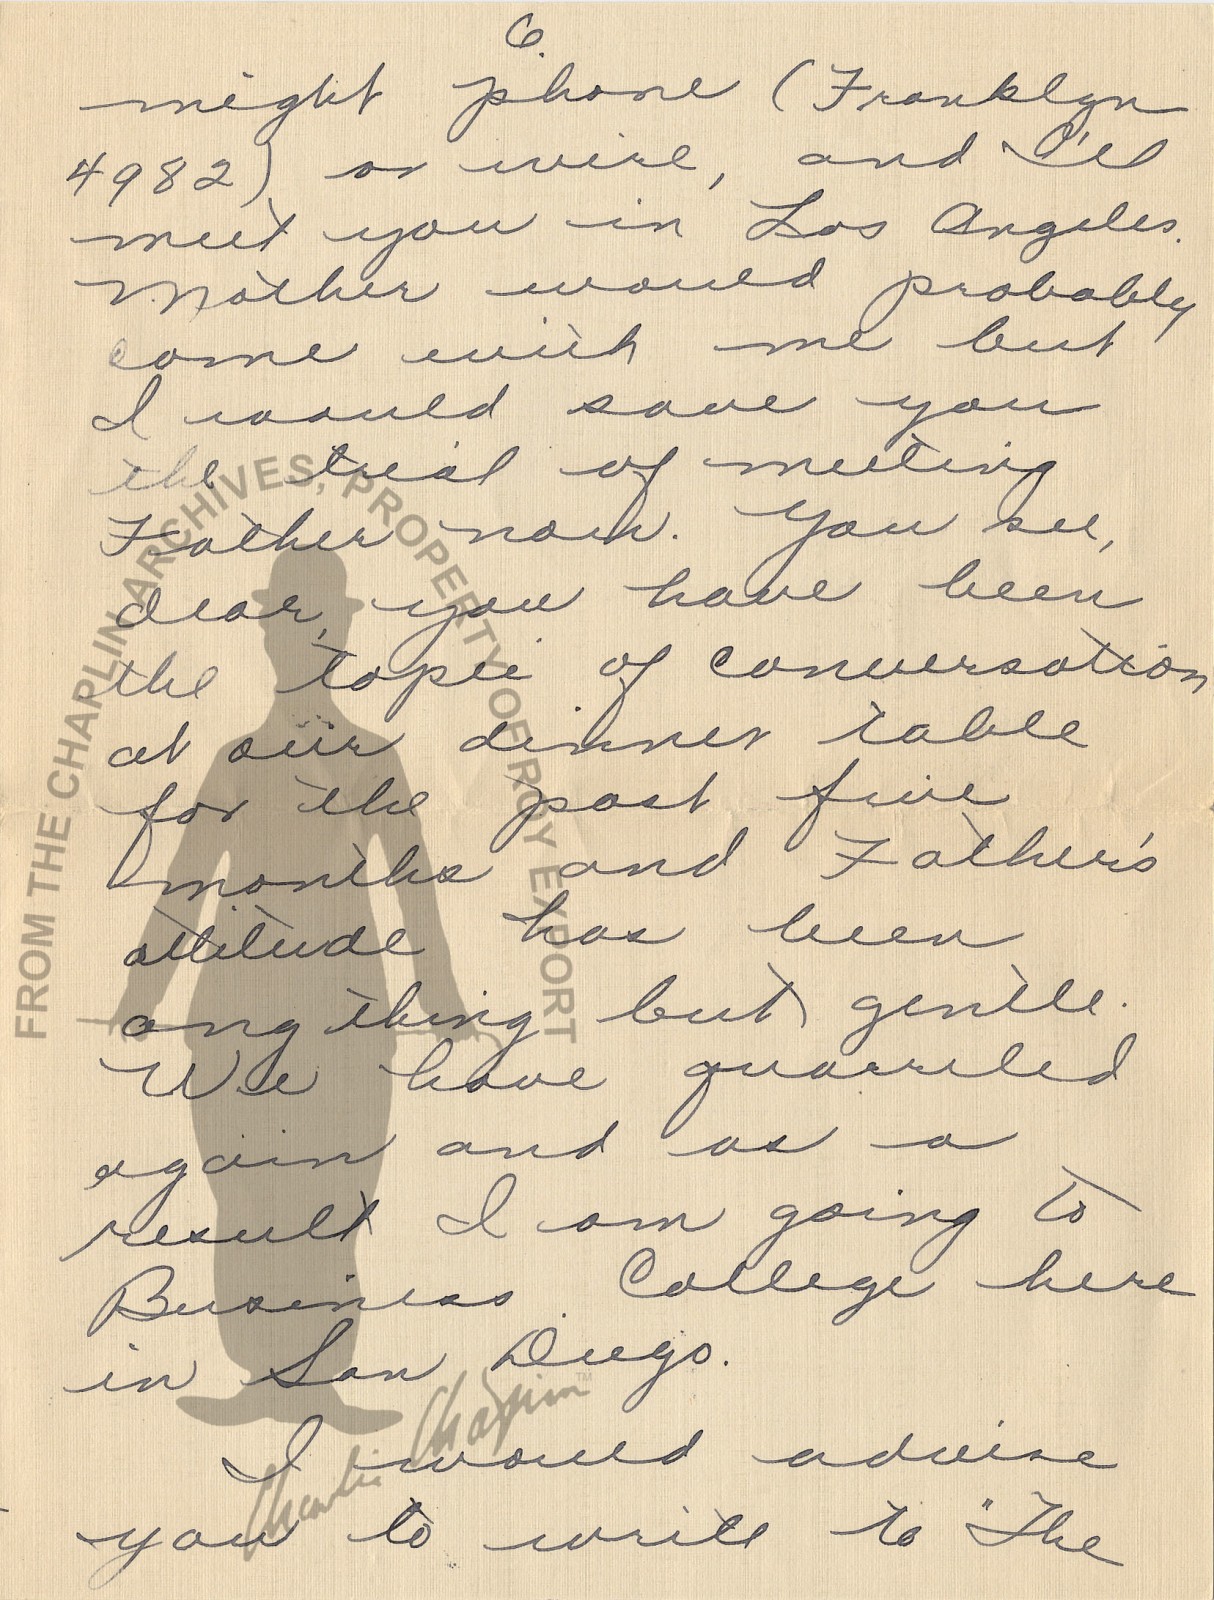 6.
might phone (Franklyn
4982) or wire, and I'll
meet you in Los Angeles.
Mother would probably
come with me but
I would save you
the trial of meeting
Father now. You see,
dear, you have been
the topic of conversation
at our dinner table
for the past five
months and Father's
attitude has been
anything but gentle.
We have quarreled
again and as a
result I am going to
Business College here
in San Diego.
I would advise
you to write to "The
FROM THE CHAPLIN ARCHIVES, PROPERTY OF ROY EXPORT
Charlie Chaplin™